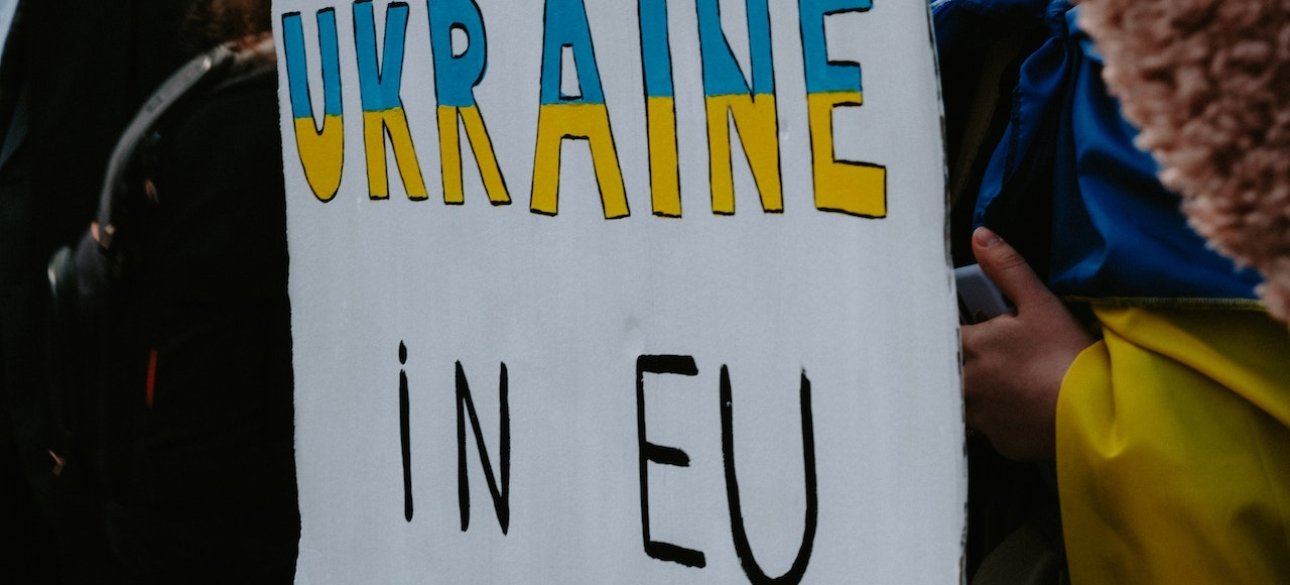 UKRAINE
iN EU